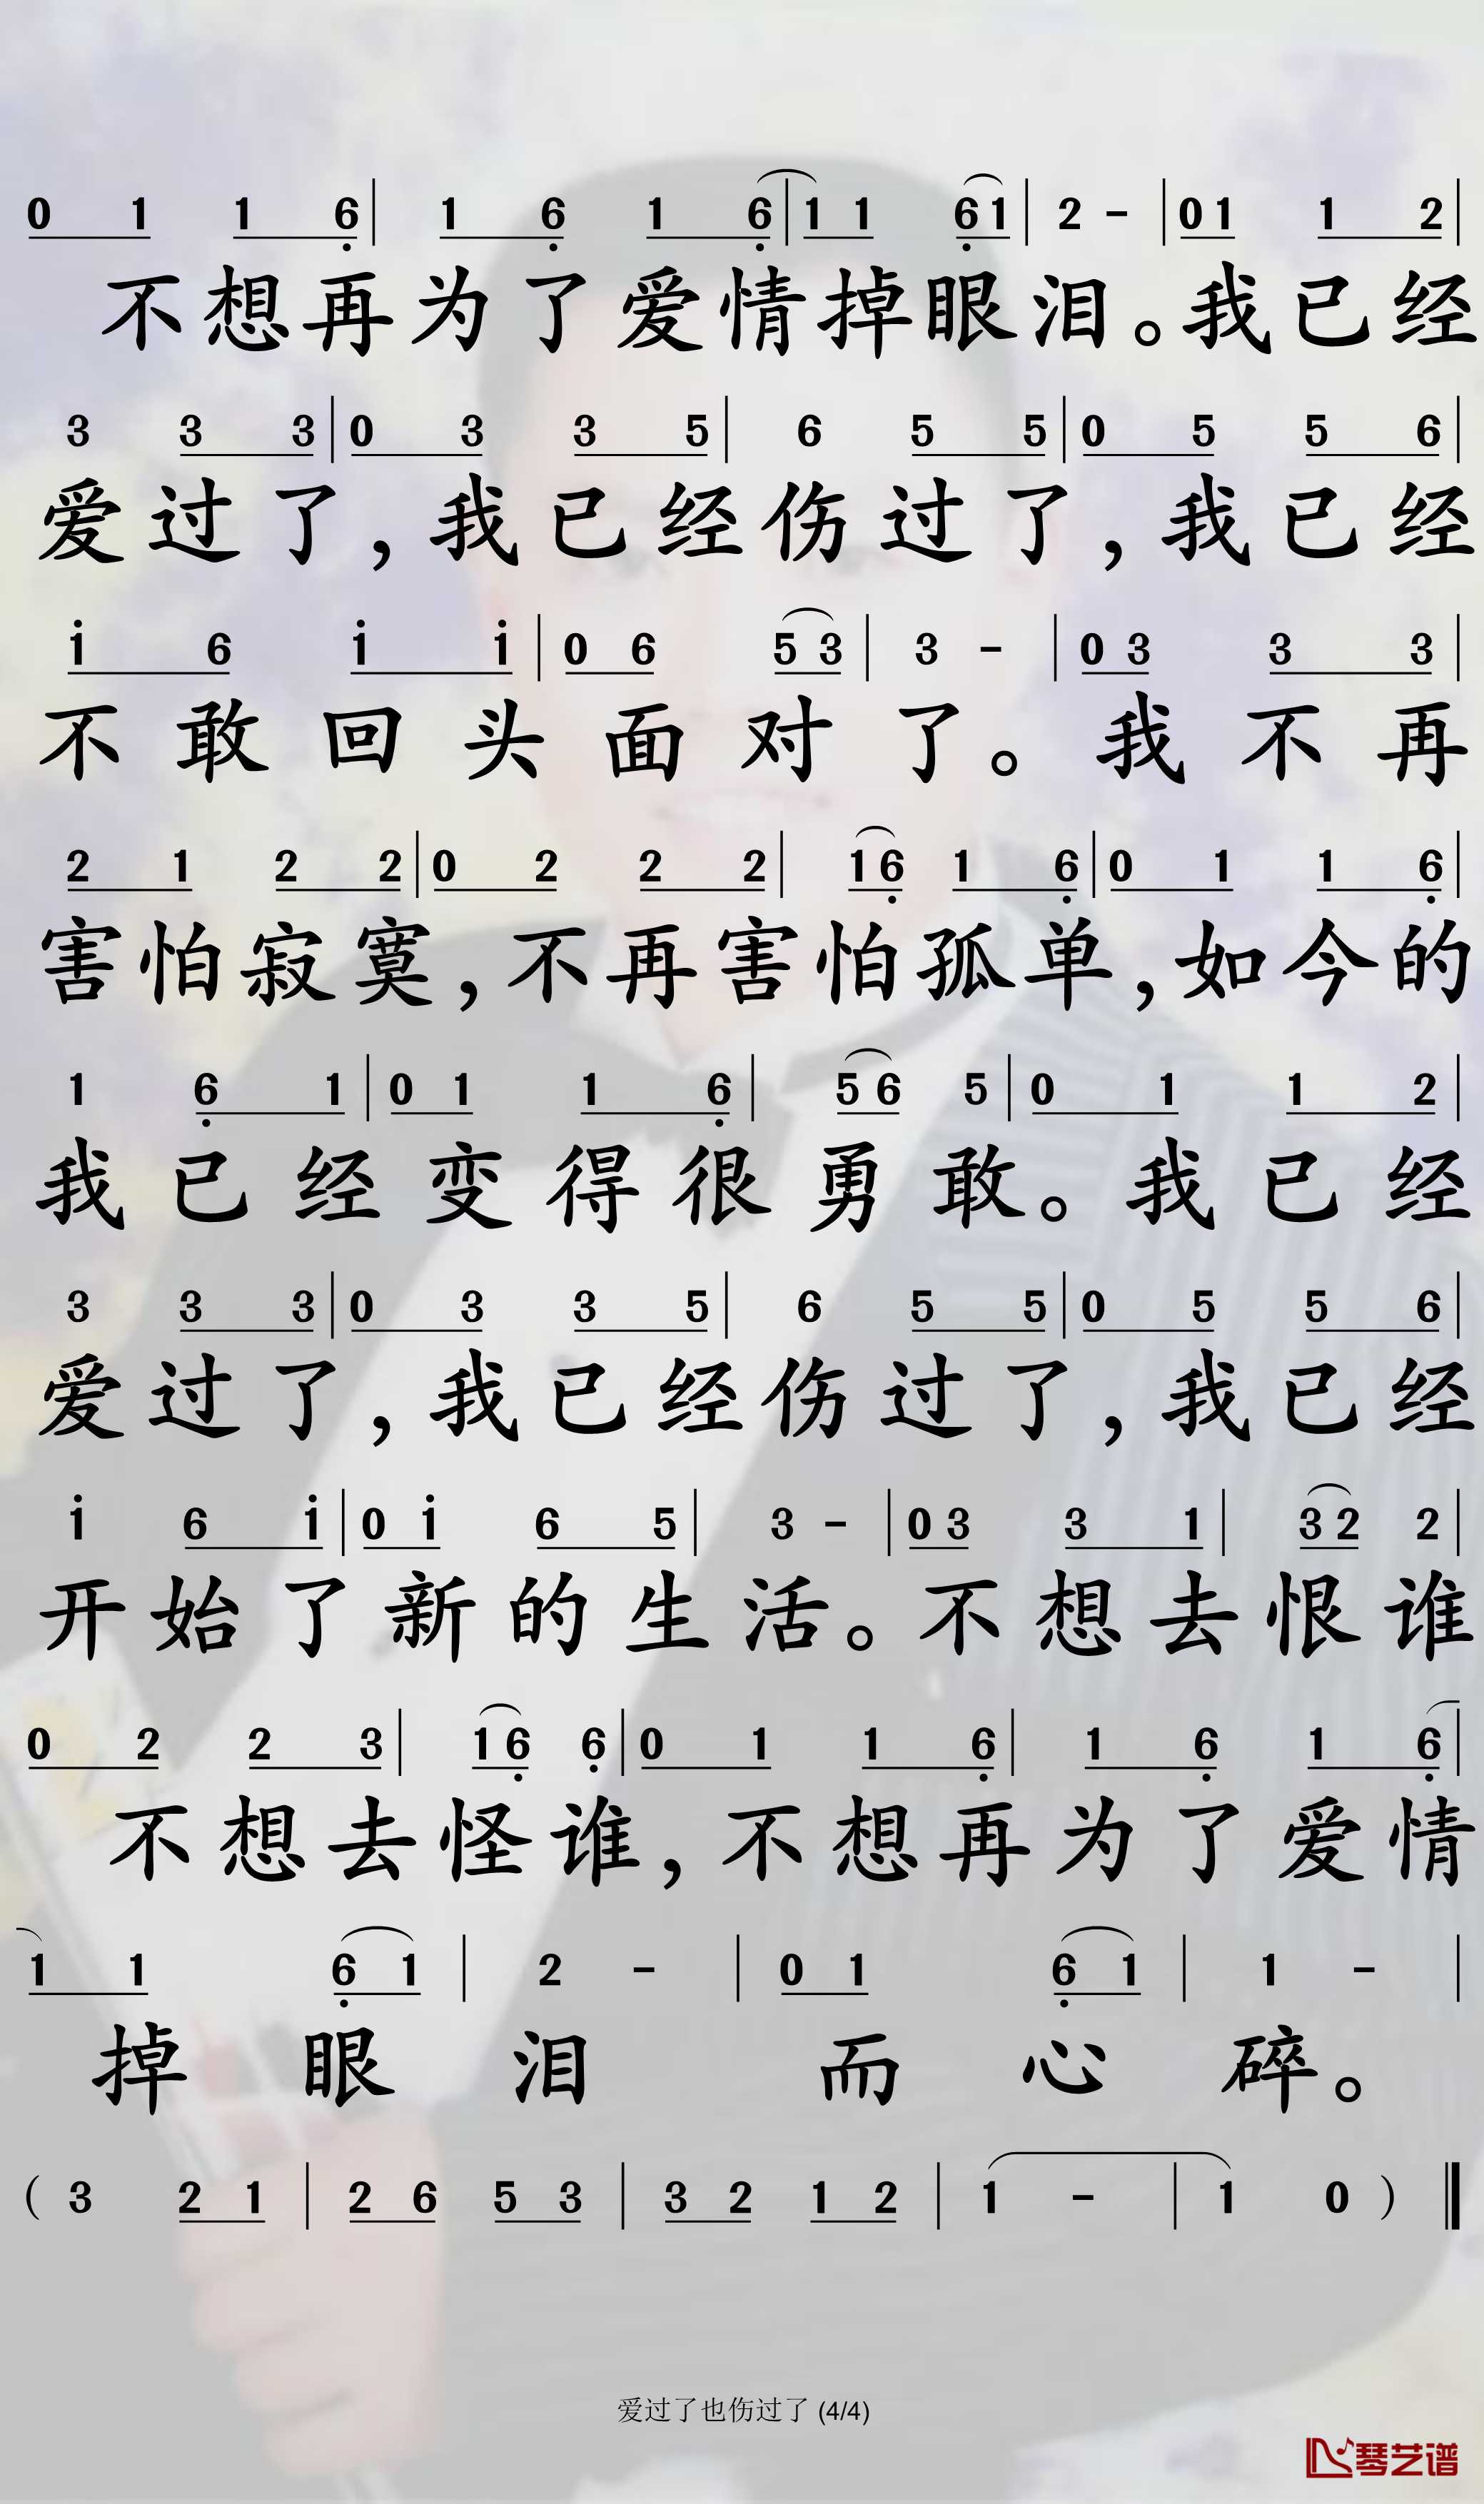 0 1 1 6 | 1 6 1 6 | 1 1 6 1 | 2 - | 0 1 1 2 |
不想再为了爱情掉眼泪。我已经
3 3 3 | 0 3 3 5 | 6 5 5 | 0 5 5 6 |
爱过了,我已经伤过了,我已经
i 6 i i | 0 6 5 3 | 3 - | 0 3 3 3 |
不敢回头面对了。我不再
2 1 2 2 | 0 2 2 2 | 1 6 1 6 | 0 1 1 6 |
害怕寂寞,不再害怕孤单,如今的
1 6 1 | 0 1 1 6 | 5 6 5 | 0 1 1 2 |
我已经变得很勇敢。我已经
3 3 3 | 0 3 3 5 | 6 5 5 | 0 5 5 6 |
爱过了,我已经伤过了,我已经
i 6 i | 0 i 6 5 | 3 - | 0 3 3 1 | 3 2 2 |
开始了新的生活。不想去恨谁
0 2 2 3 | 1 6 6 | 0 1 1 6 | 1 6 1 6 |
不想去怪谁,不想再为了爱情
1 1 6 1 | 2 - | 0 1 6 1 | 1 - |
掉眼泪而心碎。
( 3 2 1 | 2 6 5 3 | 3 2 1 2 | 1 - | 1 0 )
爱过了也伤过了 (4/4)
琴艺谱